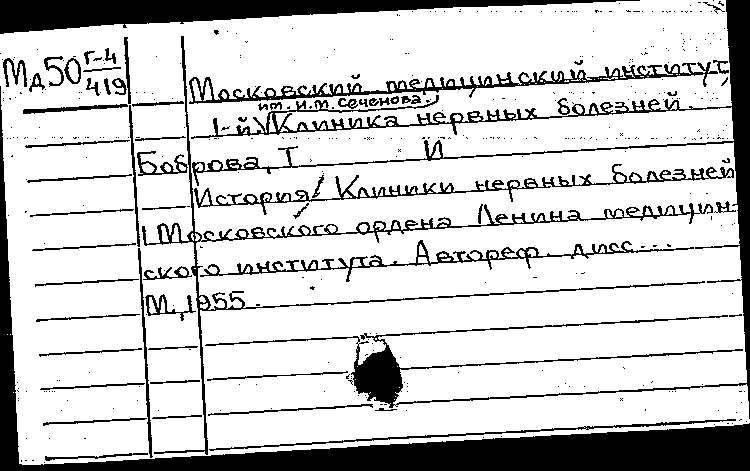 Мд50 Г-4/419
Московский медицинский институт,
им. И.М. Сеченова.
1-й. Клиника нервных болезней.
Боброва, Т И
История/ Клиники нервных болезней
I Московского ордена Ленина медицин-
ского института. Автореф. дисс...
М., 1955.